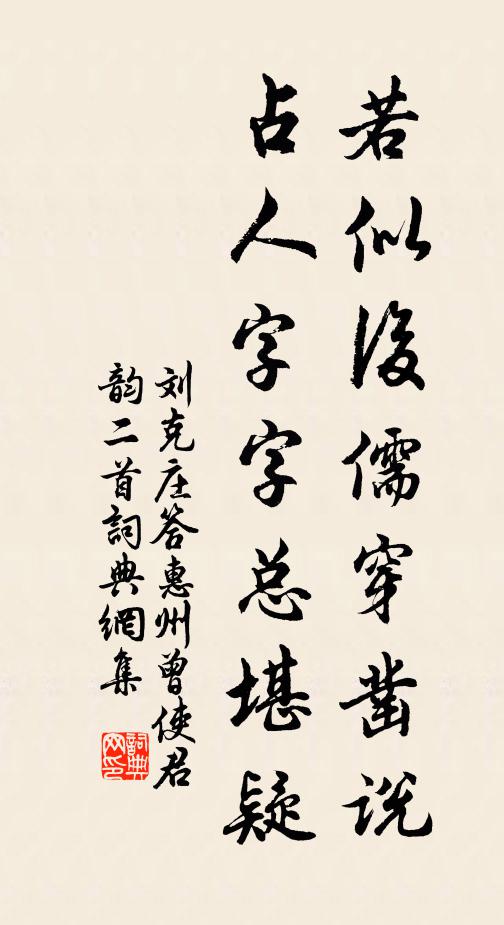 若似後儒穿凿说
占人字字总堪疑
刘克庄答惠州曾使君
韵二首詞典網集
詞典网印